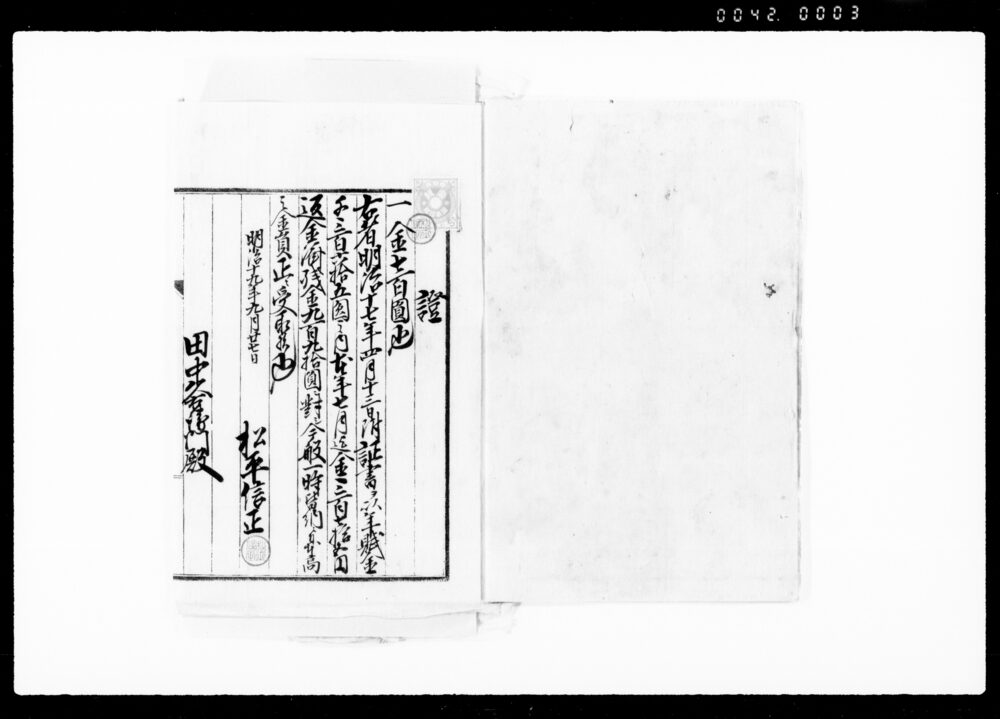 0042. 0003
證
一金七百圓也
右者明治十七年四月十三日附証書六ヶ年賦金
千三百六拾五圓之内本年七月迄金三百七拾五円
返金済残金九百九拾圓ニ対シ今般一時償却
之金員正ニ受取候也
明治十九年九月廿七日
松平信正
田中 殿